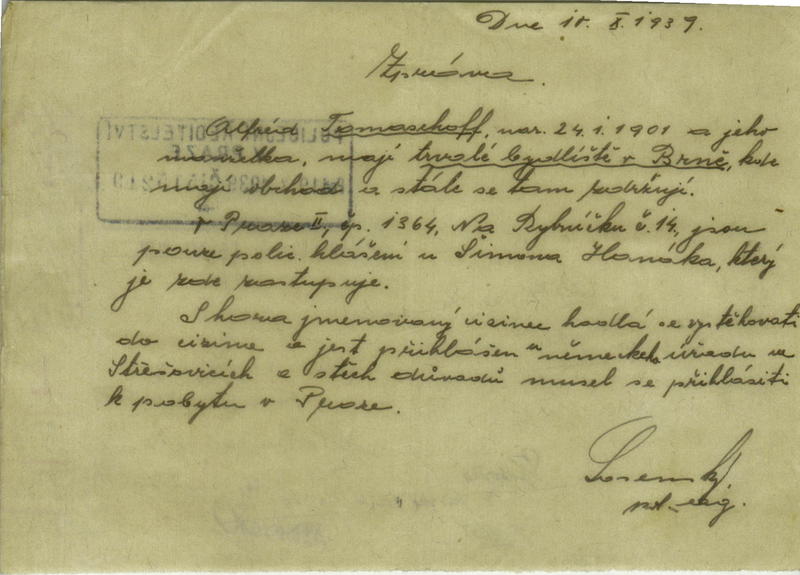 Dne 10. X. 1939.
Zpráva.
Alfréd Tomaschoff, nar. 24. i. 1901 a jeho
manželka, mají trvalé bydliště v Brně, kde
mají obchod a stále se tam zdržují.
v Praze II, čp. 1364, Na Rybníčku č. 14, jsou
pouze polic. hlášeni u Šimona Hanáka, který
je zde zastupuje.
Shora jmenovaný cizinec hodlá se vystěhovati
do ciziny a jest přihlášen u německého úřadu ve
Střešovicích a z těch důvodů musel se přihlásiti
k pobytu v Praze.
POLICEJNÍ ŘEDITELSTVÍ
V PRAZE